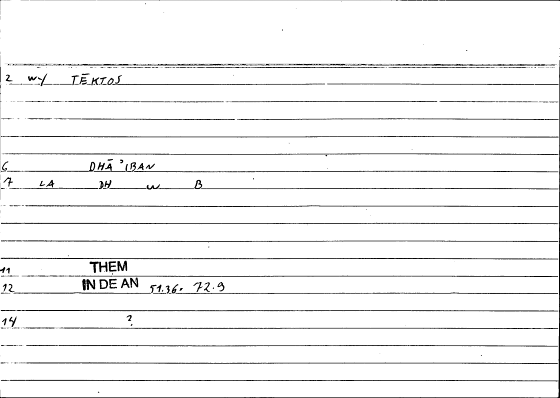 2 wy TĒKTOS
6 DHĀ'IBAN
7 LA DH W B
11 THEM
12 IN DE AN 51.36. 72.9
14 ?